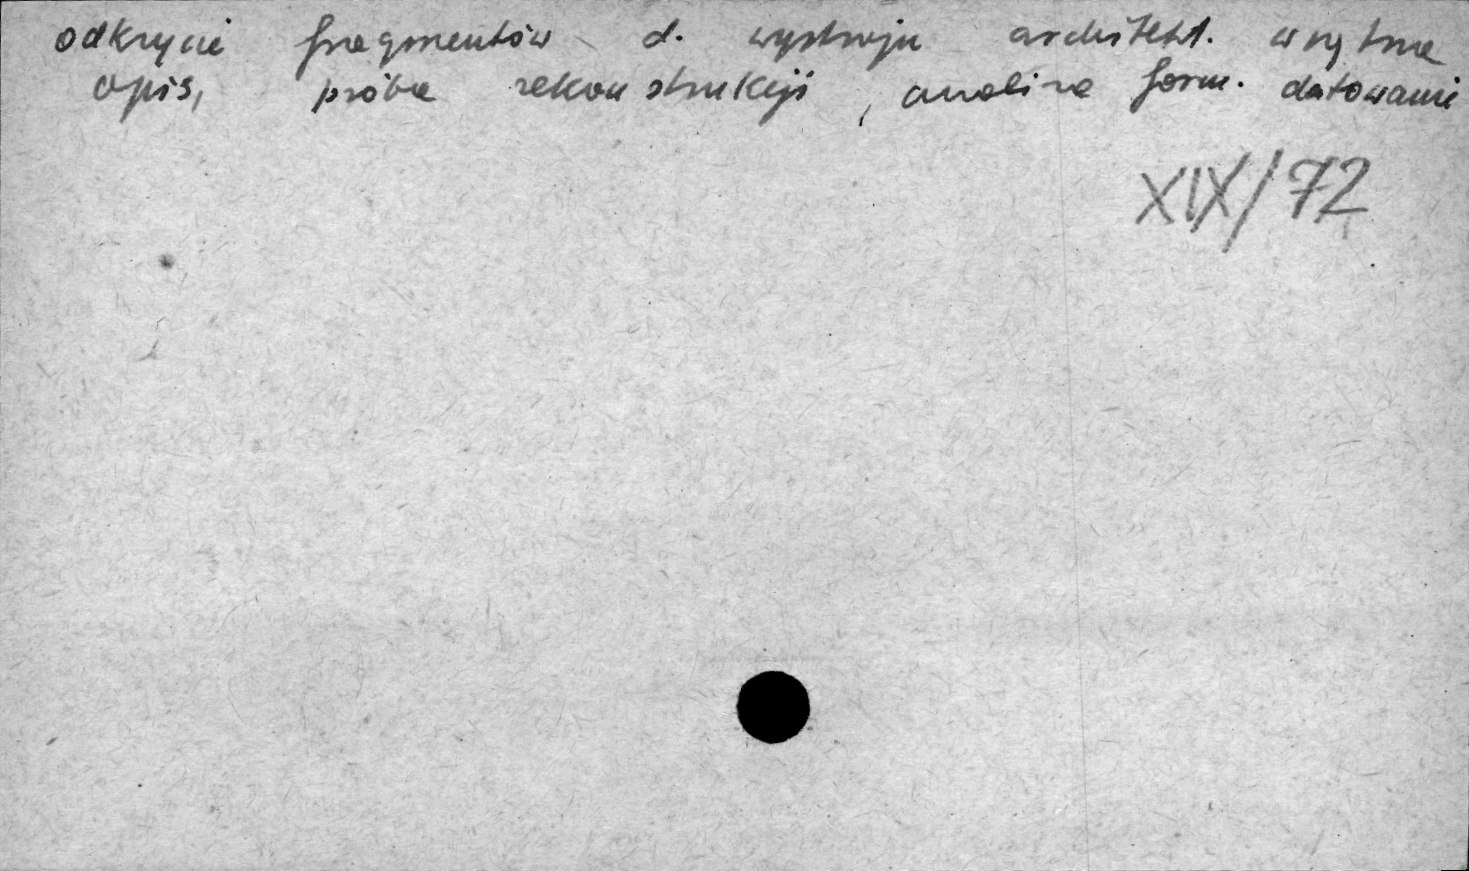 odkrycie fragmentów d. wystroju architekt. wnętrza
opis, próba rekonstrukcji, analiza form. datowanie
XIX/72